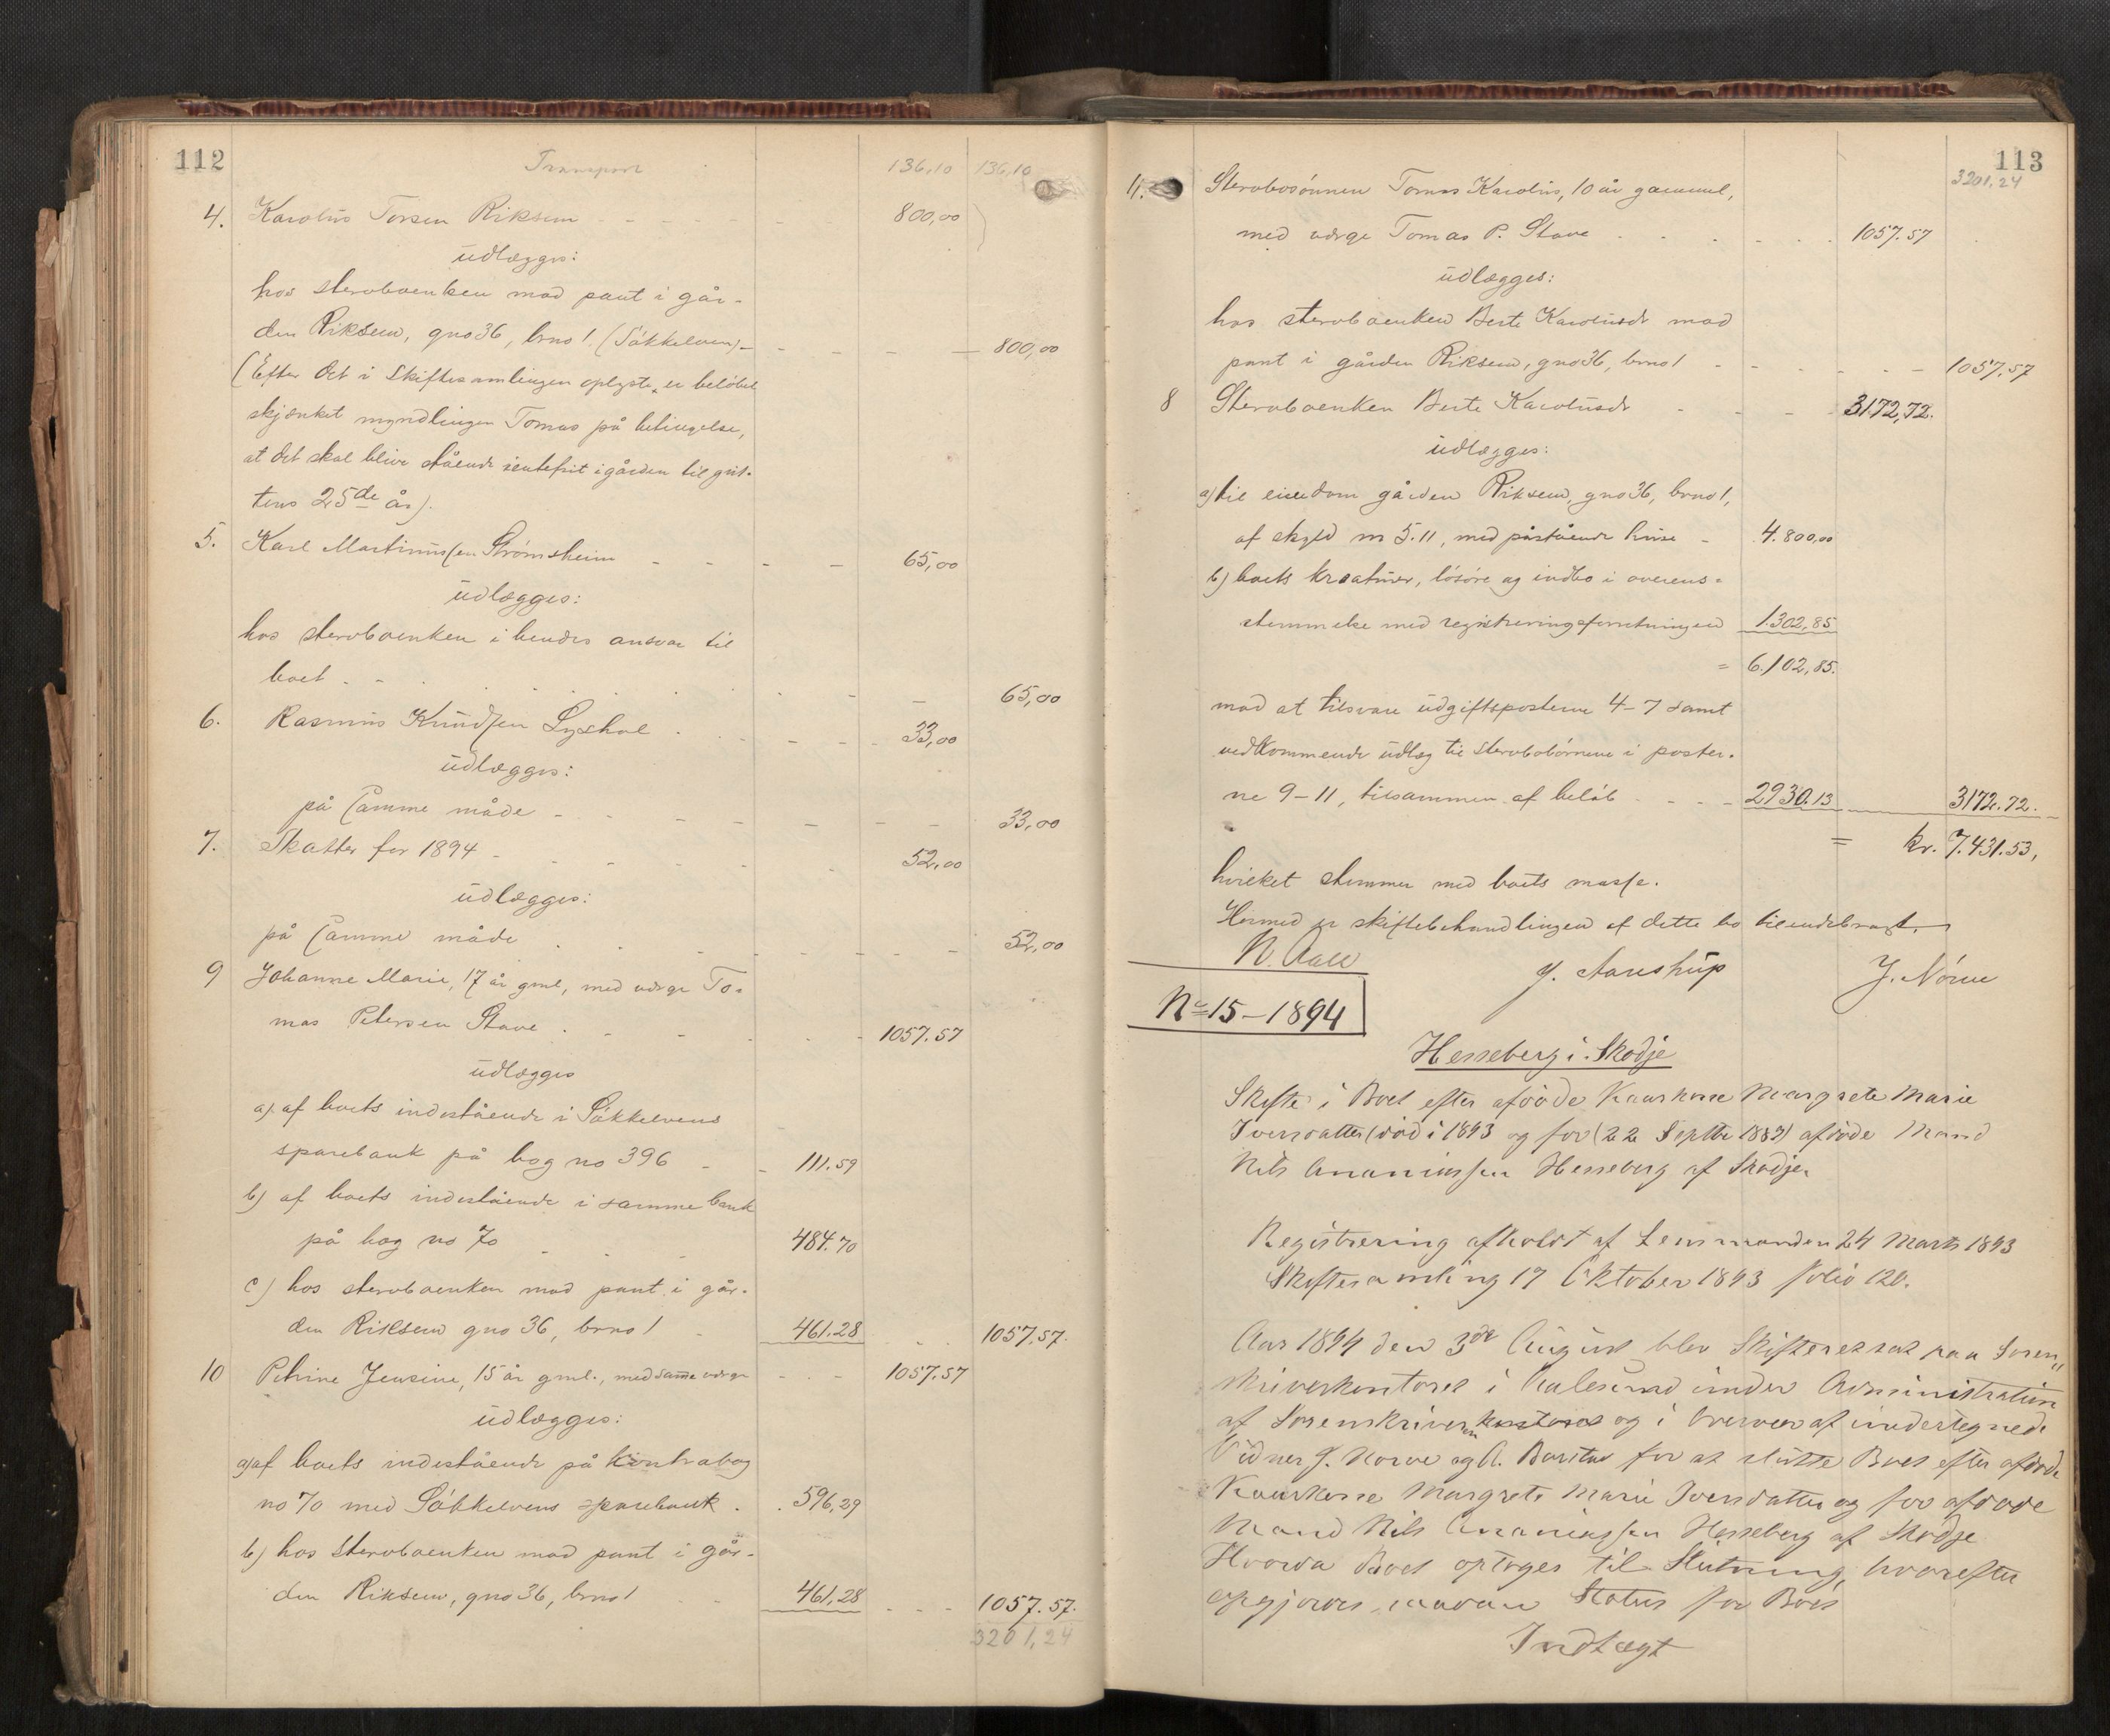 112
Transport 136,10 136,10
4. Karolus Torsen Riksem - - - - 800,00
udlægges:
hos sterboenken mod pant i går-
den Riksem, gno 36, brno 1. (Søkkelven) - - - - 800,00
(Efter det i skiftesamlingen oplyste, er beløbet
skjænket myndlingen Tomas på betingelse,
at det skal blive stående rentefrit i gården til gut-
tens 25de år).
5. Karl Martinussen Strømsheim - - - - 65,00
udlægges:
hos sterboenken i hendes ansvar til
boet - - - - 65,00
6. Rasmus Knudsen Lyshol - - - - 33,00
udlægges:
på samme måde - - - - 33,00
7. Skatter for 1894 - - - - 52,00
udlægges:
på samme måde - - - - 52,00
9 Johanne Marie, 17 år gml, med værge To-
mas Petersen Stave - - - - 1057.57
udlægges
a). af boets indestående i Søkkelvens
sparebank på bog no 396 - - 111.59
b) af boets indestående i samme bank
på bog no 70 - - - 484.70
c) hos sterboenken mod pant i går-
den Riksem gno 36, brno 1 - 461.28 - - 1057.57.
10 Petrine Jensine, 15 år gml., med samme værge - - - 1057.57
udlægges:
a) af boets indestående på kontrabog
no 70 med Søkkelvens sparebank - 596,29
b) hos sterboenken mod pant i går-
den Riksem, gno 36, brno 1 - - 461,28 - - - 1057.57.
3201,24
113
3201,24
11. Sterbosønnen Tomas Karolus, 10 år gammel,
med værge Tomas P. Stave - - - - 1057.57
udlægges:
hos sterboenken Berte Karolusdr mod
pant i gården Riksem, gno 36, brno 1 - - - - 1057.57
8 Sterboenken Berte Karolusdr - - - - 3172,72.
udlægges:
a) til eiendom gården Riksem, gno 36, brno 1,
af skyld m 5.11, med påstående huse - 4.800,00
b) boets kreaturer, løsøre og indbo i overens-
stemmelse med registreringsforretningen 1.302,85
= 6.102,85.
mod at tilsvare udgiftsposterne 4-7 samt
vedkommende udlæg til sterbobørnene i poster-
ne 9-11, tilsammen af beløb - - - - 2930.13 3172.72.
= kr. 7.431.53,
hvilket stemmer med boets masse.
Hermed er skiftebehandlingen af dette bo tilendebragt.
N. Aall J. Aarestrup J. Nørve
No 15-1894
Hesseberg i Skodje
Skifte i Boet efter afdøde Kaarkone Margrete Marie
Iversdatter (død i 1893 og før (22 Septbr 1889) afdøde Mand
Nils Ananiassen Hesseberg af Skodje.
Registrering afholdt af Lensmanden 24 Marts 1893
Skiftesamling 17 Oktober 1893 folio 120.
Aar 1894 den 3de August blev Skifteret sat paa Soren-
skriverkontoret i Aalesund under Administration
af Sorenskriveren og i Overvær af undertegnede
Vidner J. Norve og A. for at slutte Boet efter afdøde
Kaarkone Margrete Marie Iversdatter og før afdøde
Mand Nils Ananiassen Hesseberg af Skodje
Hvorda Boet optoges til Slutning, hvorefter
opgjordes saadan Status for Boet
Indtægt